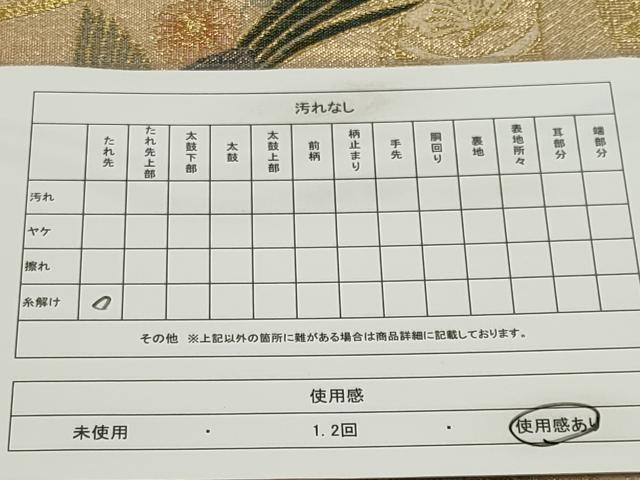 汚れなし
たれ先 たれ先上部 太鼓下部 太鼓 太鼓上部 前柄 柄止まり 手先 胴回り 裏地 表地所々 耳部分 端部分
汚れ
ヤケ
擦れ
糸解け 0
その他 ※上記以外の箇所に難がある場合は商品詳細に記載しております。
使用感
未使用 ・ 1.2回 ・ 使用感あり